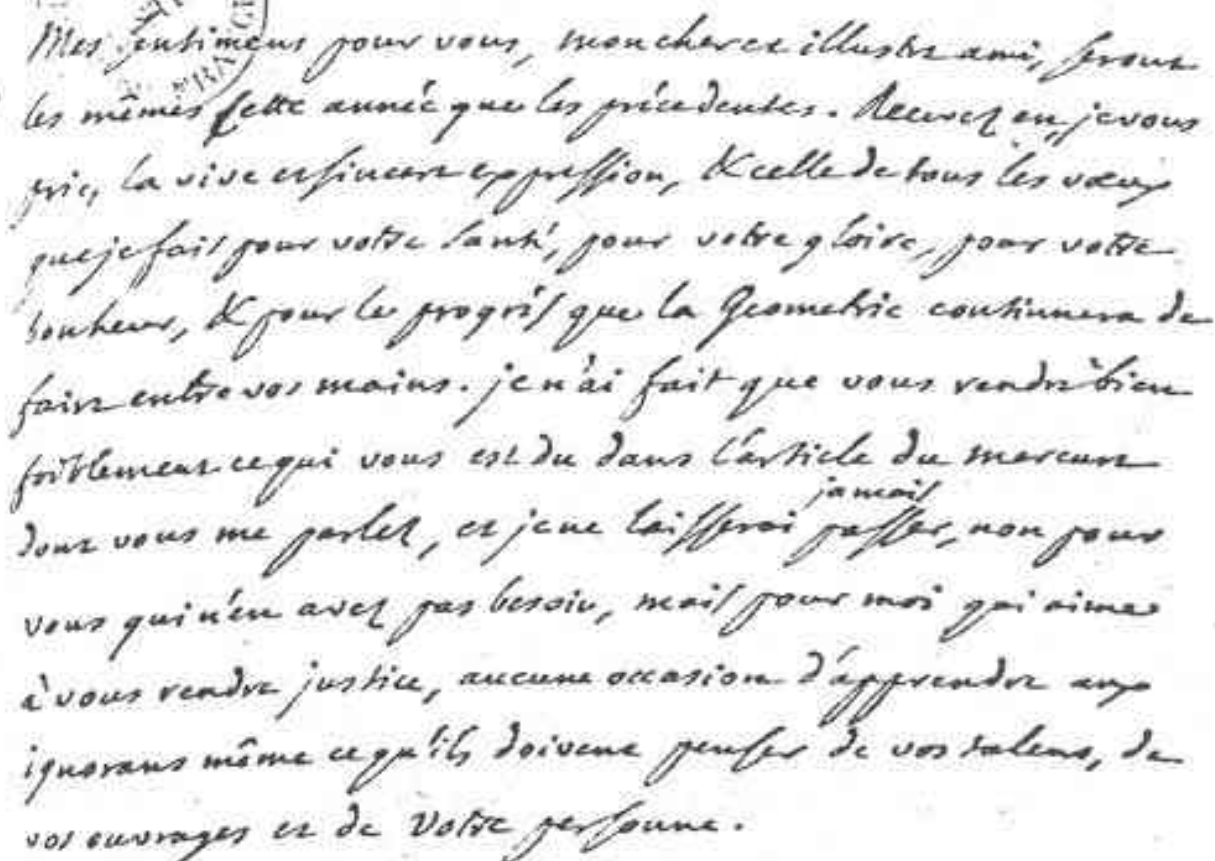 Mes sentimens pour vous, mon cher et illustre ami, seront
les mêmes cette année que les précedentes. Recevez en, je vous
prie, la vive et sincere expression, & celle de tous les vœux
que je fais pour votre santé, pour votre gloire, pour votre
bonheur, & pour le progrès que la Geometrie continuera de
faire entre vos mains. je n'ai fait que vous rendre bien
foiblement ce qui vous est du dans l'article du mercure
jamais
dont vous me parlez, et je ne laisserai passer, non pour
vous qui n'en avez pas besoin, mais pour moi qui aime
à vous rendre justice, aucune occasion d'apprendre aux
ignorans même ce qu'ils doivent penser de vos talens, de
vos ouvrages et de Votre personne.